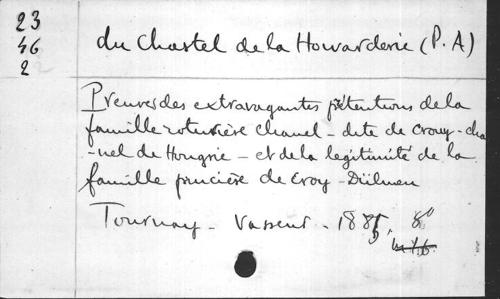 23
46
2
du Chastel de la Howarderie (P. A)
Preuves des extravagantes prétentions de la
famille roturière Chanel - dite de Crouy - cha
-nel de Hongrie - et de la legitimité de la
famille princière de Croy - Dülmen
Tournay - Vasseur - 1885. 8°